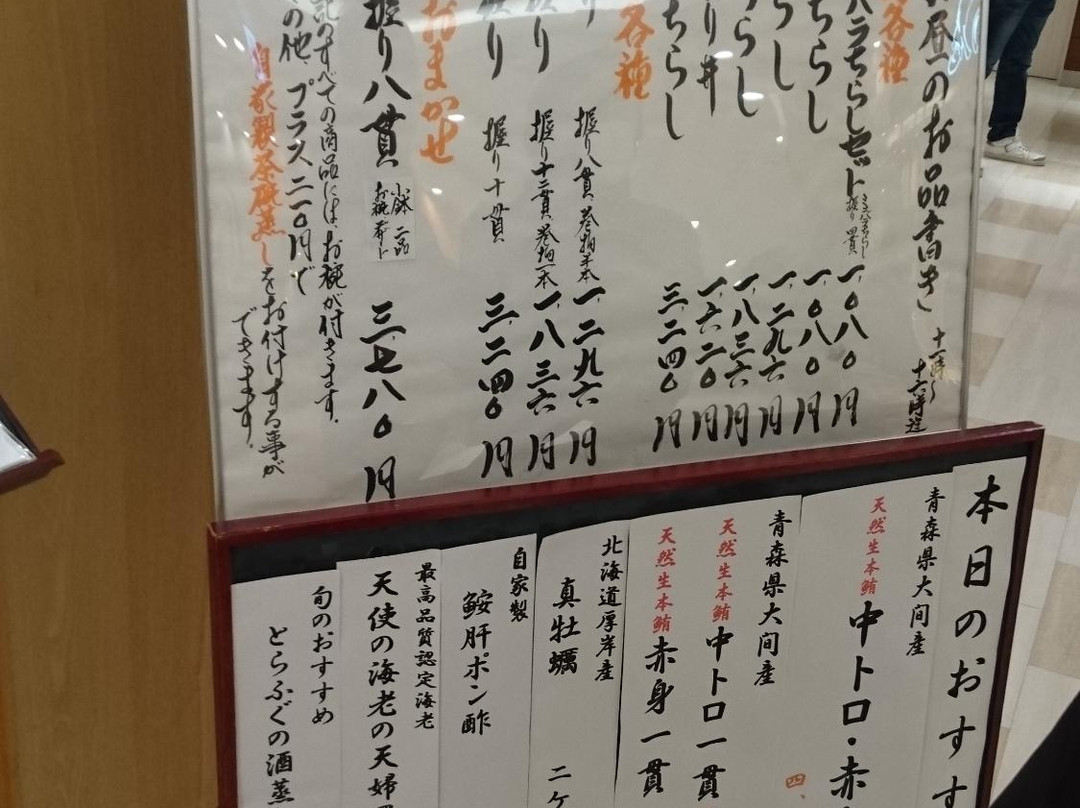 昼のお品書き 十一時〜十六時迄
各種
バラちらしセット 握り一貫 一、〇八〇円
ちらし 一、〇八〇円
らし 一、二九六円
らし 一、八三六円
り丼 一、六二〇円
ちらし 三、二四〇円
各種
り 握り八貫 巻物半本 一、二九六円
り 握り十二貫 巻物一本 一、八三六円
り 握り十貫 三、二四〇円
おまかせ
握り八貫 小鉢二品 お椀 三、七八〇円
記のすべての商品には、お椀が付きます。
の他、プラス二一〇円で
自家製茶碗蒸しをお付けする事が
できます。
本日のおすす
青森県大间産
天然生本鮪 中トロ・赤
四、
青森県大间産
天然生本鮪 中トロ一貫
天然生本鮪 赤身一貫
北海道厚岸産
真牡蠣 二ケ
自家製
鮟肝ポン酢
最高品質認定海老
天使の海老の天婦
旬のおすすめ
とらふぐの酒蒸